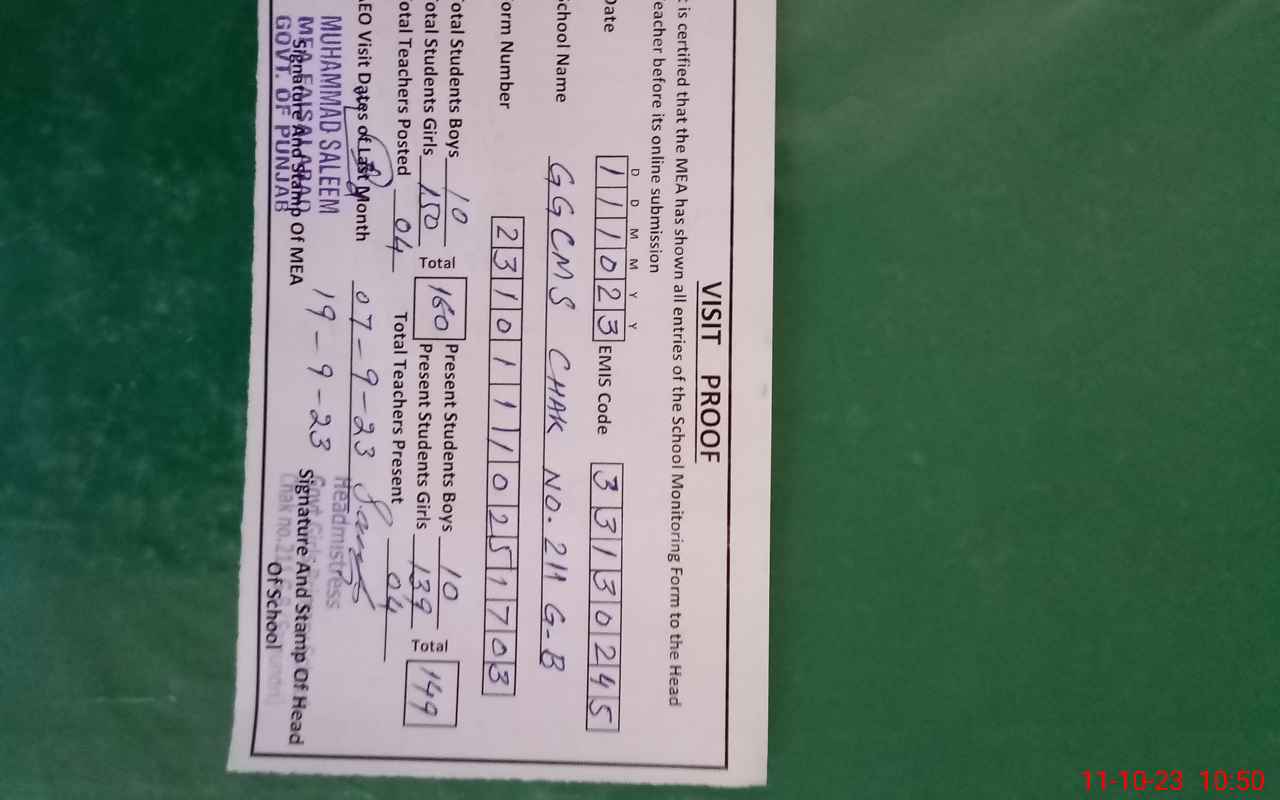 VISIT PROOF
t is certified that the MEA has shown all entries of the School Monitoring Form to the Head
eacher before its online submission
D D M M Y Y
Date 1 1 1 0 2 3 EMIS Code 3 3 1 3 0 2 4 5
School Name GGCMS CHAK NO. 211 G-B
orm Number 2 3 1 0 1 1 1 0 2 5 1 7 0 3
Total Students Boys 10 Present Students Boys 10
Total Students Girls 150 Total 160 Present Students Girls 139 Total 149
Total Teachers Posted 04 Total Teachers Present 04
AEO Visit Dates of Last Month 07-9-23
19-9-23
MUHAMMAD SALEEM
MEA FAISALABAD
GOVT. OF PUNJAB
Signature And Stamp Of MEA
Headmistress
Govt Girls
Chak no.211
Signature And Stamp Of Head
Of School
11-10-23 10:50